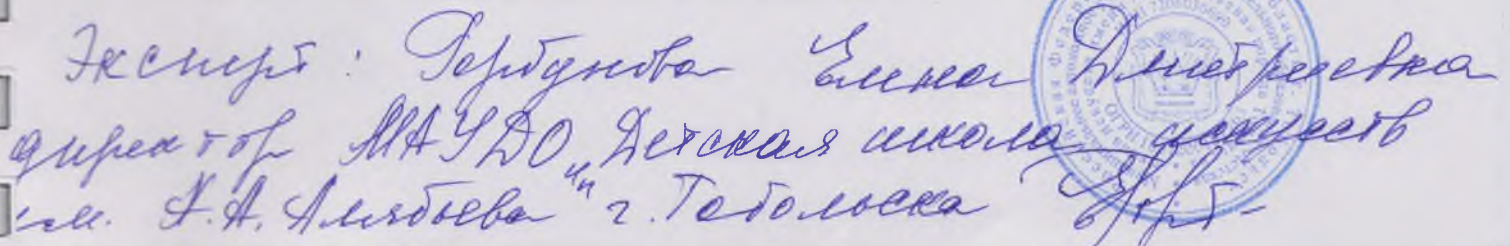 Эксперт: Горбунова Елена Дмитриевна
директор МАУ ДО „Детская школа искусств
им. А.А. Алябьева" г. Тобольска